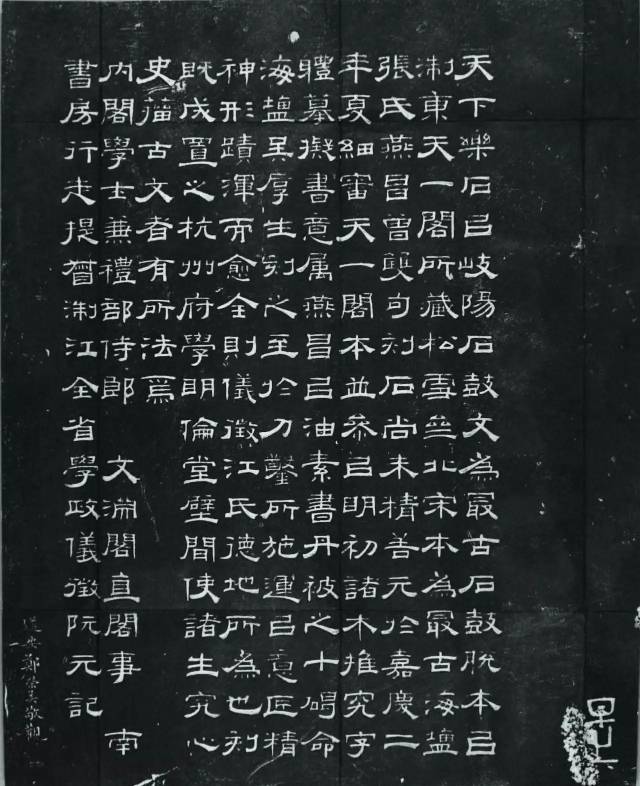 天下樂石㠯岐陽石鼓文為最古石鼓脫本㠯
淛東天一閣所藏松雪𠫤北宋本為最古海鹽
張氏燕昌曾雙勾刻石尚未精善元於嘉慶二
年夏細審天一閣本並叅㠯明初諸本推究字
軆摹擬書意属燕昌㠯油素書丹被之十碣命
海鹽吴厚生刻之至於刀鑿所施運㠯意匠精
神形蹟渾而愈全則儀徵江氏德地所為也刻
既成置之杭州府學明倫堂壁間使諸生究心
史籀古文者有所法焉
內閣學士兼禮部侍郎 文淵閣直閣事 南
書房行走提督淛江全省學政儀徵阮元記